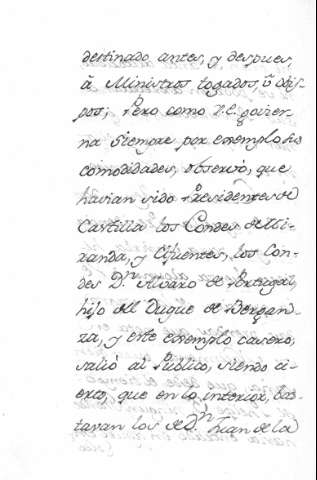 destinado antes, y despues,
à Ministros togados, ù obis-
pos; Pero como V.E. govier-
na siempre por exemplo sus
comodidades, observò, que
havian sido Presidentes de
Castilla los Condes de Mi-
randa, y Cifuentes, los Con-
des Dn. Alvaro de Portugal,
hijo del Duque de Bergan-
za, y este exemplo casero,
saliò al Publico, siendo ci-
erto, que en lo interior, bas-
tavan los de Dn. Juan de la